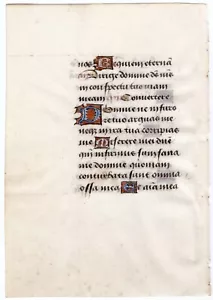 nos Requiem eternā
Dirige domine de meꝰ
in conspectu tuo uiam
meam Conuertere
Domine ne in furo
re tuo arguas me
neqꝫ in ira tua corripias
me Miserere mei dñe
qm̄ infirmus sum sana
me domine quoniam
conturbata sunt omnia
ossa mea Et aīa mea